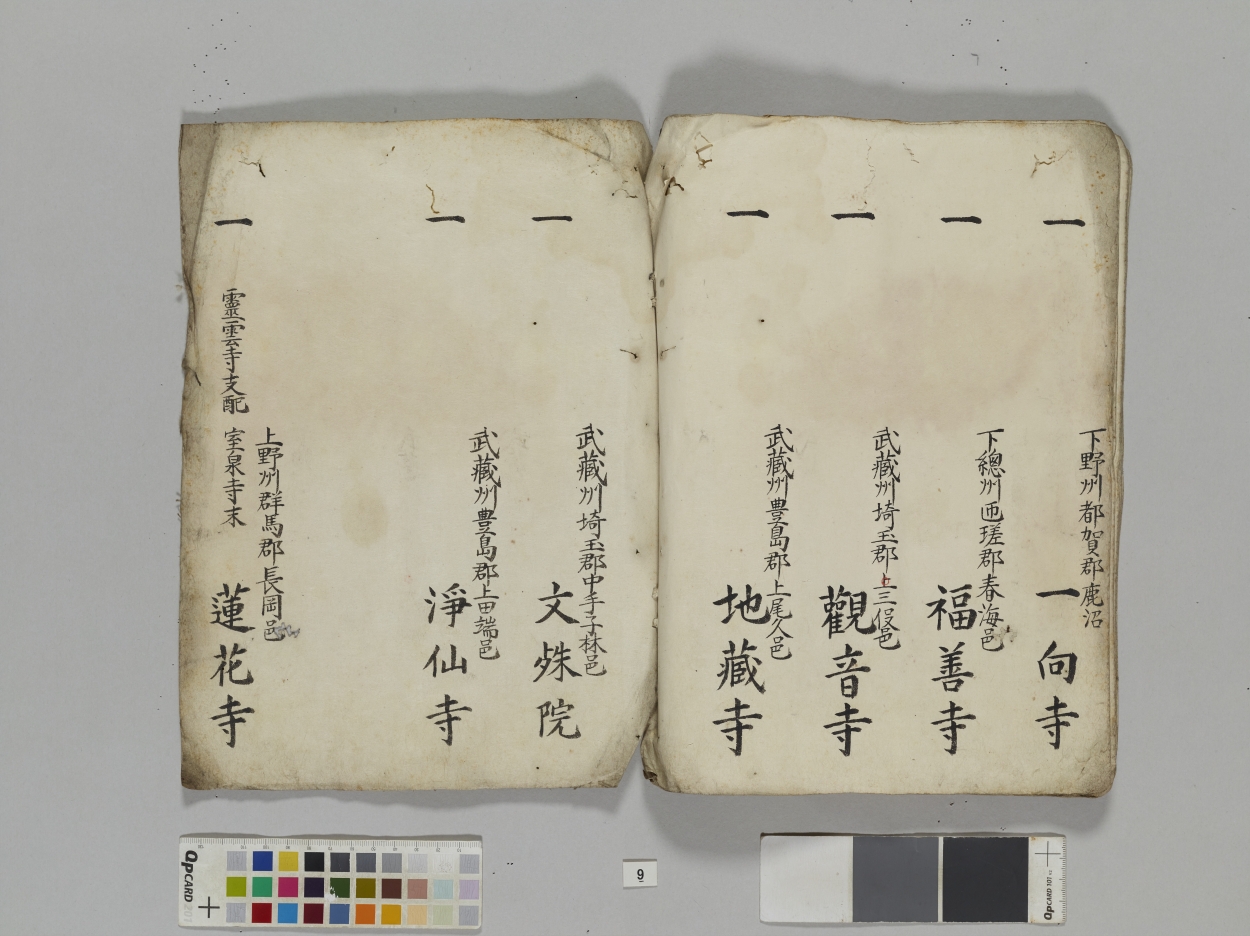 一
下野州都賀郡鹿沼
一向寺
一
下總州匝瑳郡春海邑
福善寺
一
武藏州埼玉郡上三俣邑
觀音寺
一
武藏州豊島郡上尾久邑
地藏寺
一
武藏州埼玉郡中手子林邑
文殊院
一
武藏州豊島郡上田端邑
淨仙寺
一
上野州群馬郡長岡邑
靈雲寺支配 室泉寺末
蓮花寺
QPCARD 201
9
QPCARD 101